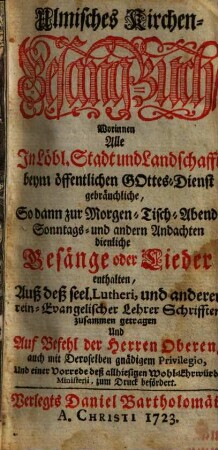 Ulmisches Kirchen-
Gesang-Buch
Worinnen
Alle
In Löbl. Stadt und Landschafft
beym öffentlichen GOttes-Dienst
gebräuchliche,
So dann zur Morgen-Tisch-Abend
Sonntags- und andern Andachten
dienliche
Gesänge oder Lieder
enthalten,
Auß deß seel. Lutheri, und anderer
rein-Evangelischer Lehrer Schrifften
zusammen getragen
Und
Auf Befehl der Herren Oberen,
auch mit Deroselben gnädigem Privilegio,
Und einer Vorrede deß allhiesigen Wohl-Ehrwürd
Ministerii, zum Druck befördert.
Verlegts Daniel Bartholomäi
A. CHRISTI 1723.